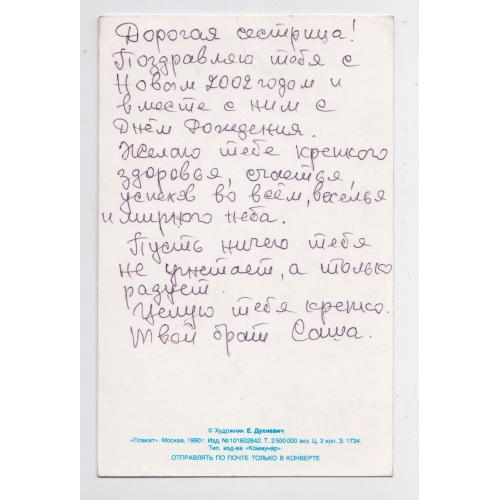 Дорогая сестрица!
Поздравляю тебя с
Новым 2002 годом и
вместе с ним с
Днём Рождения.
Желаю тебе крепкого
здоровья, счастья,
успехов во всём, веселья
и мирного неба.
Пусть ничего тебя
не угнетает, а только
радует.
Целую тебя крепко.
Твой брат Саша.
© Художник Е. Духневич
«Плакат». Москва, 1990 г. Изд. № 101602842. Т. 2 500 000 экз. Ц. 3 коп. З. 1734.
Тип. изд-ва «Коммунар».
ОТПРАВЛЯТЬ ПО ПОЧТЕ ТОЛЬКО В КОНВЕРТЕ